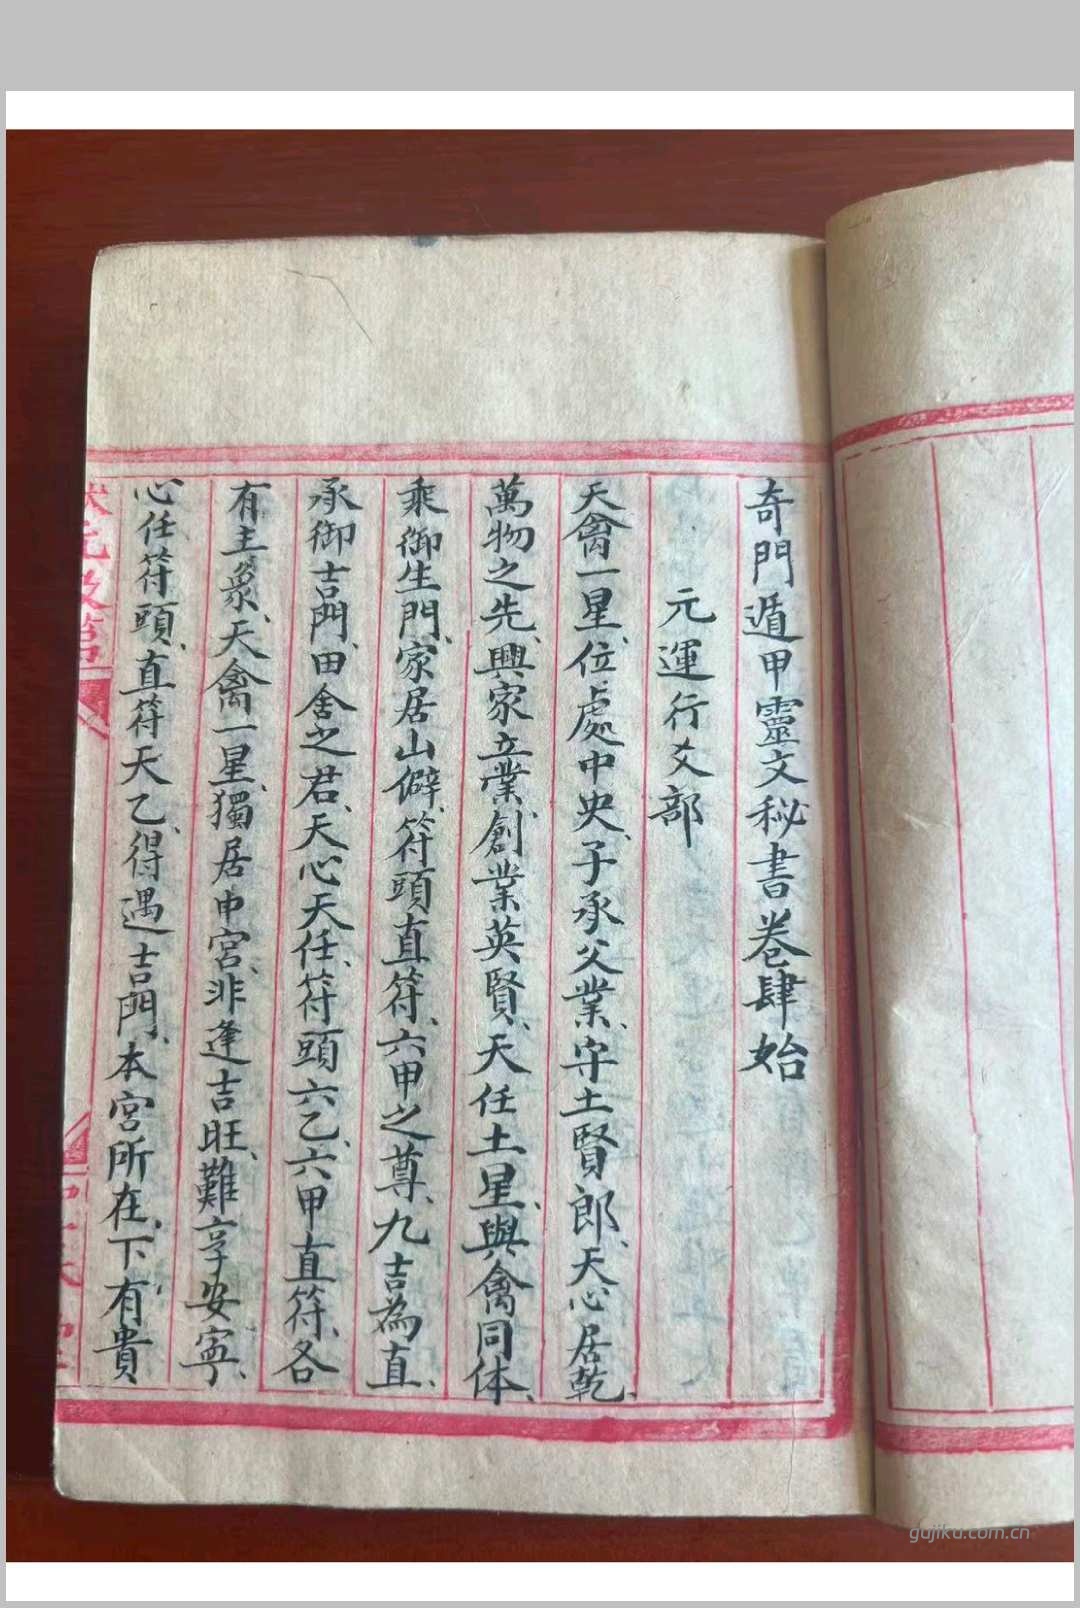 奇門遁甲靈文秘書卷肆始
元運行爻部
天禽一星、位處中央、子承父業、守土賢郎、天心居乾、
萬物之先、興家立業、創業英賢、天任土星、與禽同体、
乘御生門、家居山僻、符頭直符、六甲之尊、九吉為直、
承御吉門、田舍之君、天心天任、符頭六乙、六甲直符、各
有主衆、天禽一星、獨居中宮、非逢吉旺、難享安寧、
心任符頭、直符天乙、得遇吉門、本宮所在、下有貴
gujiku.com.cn